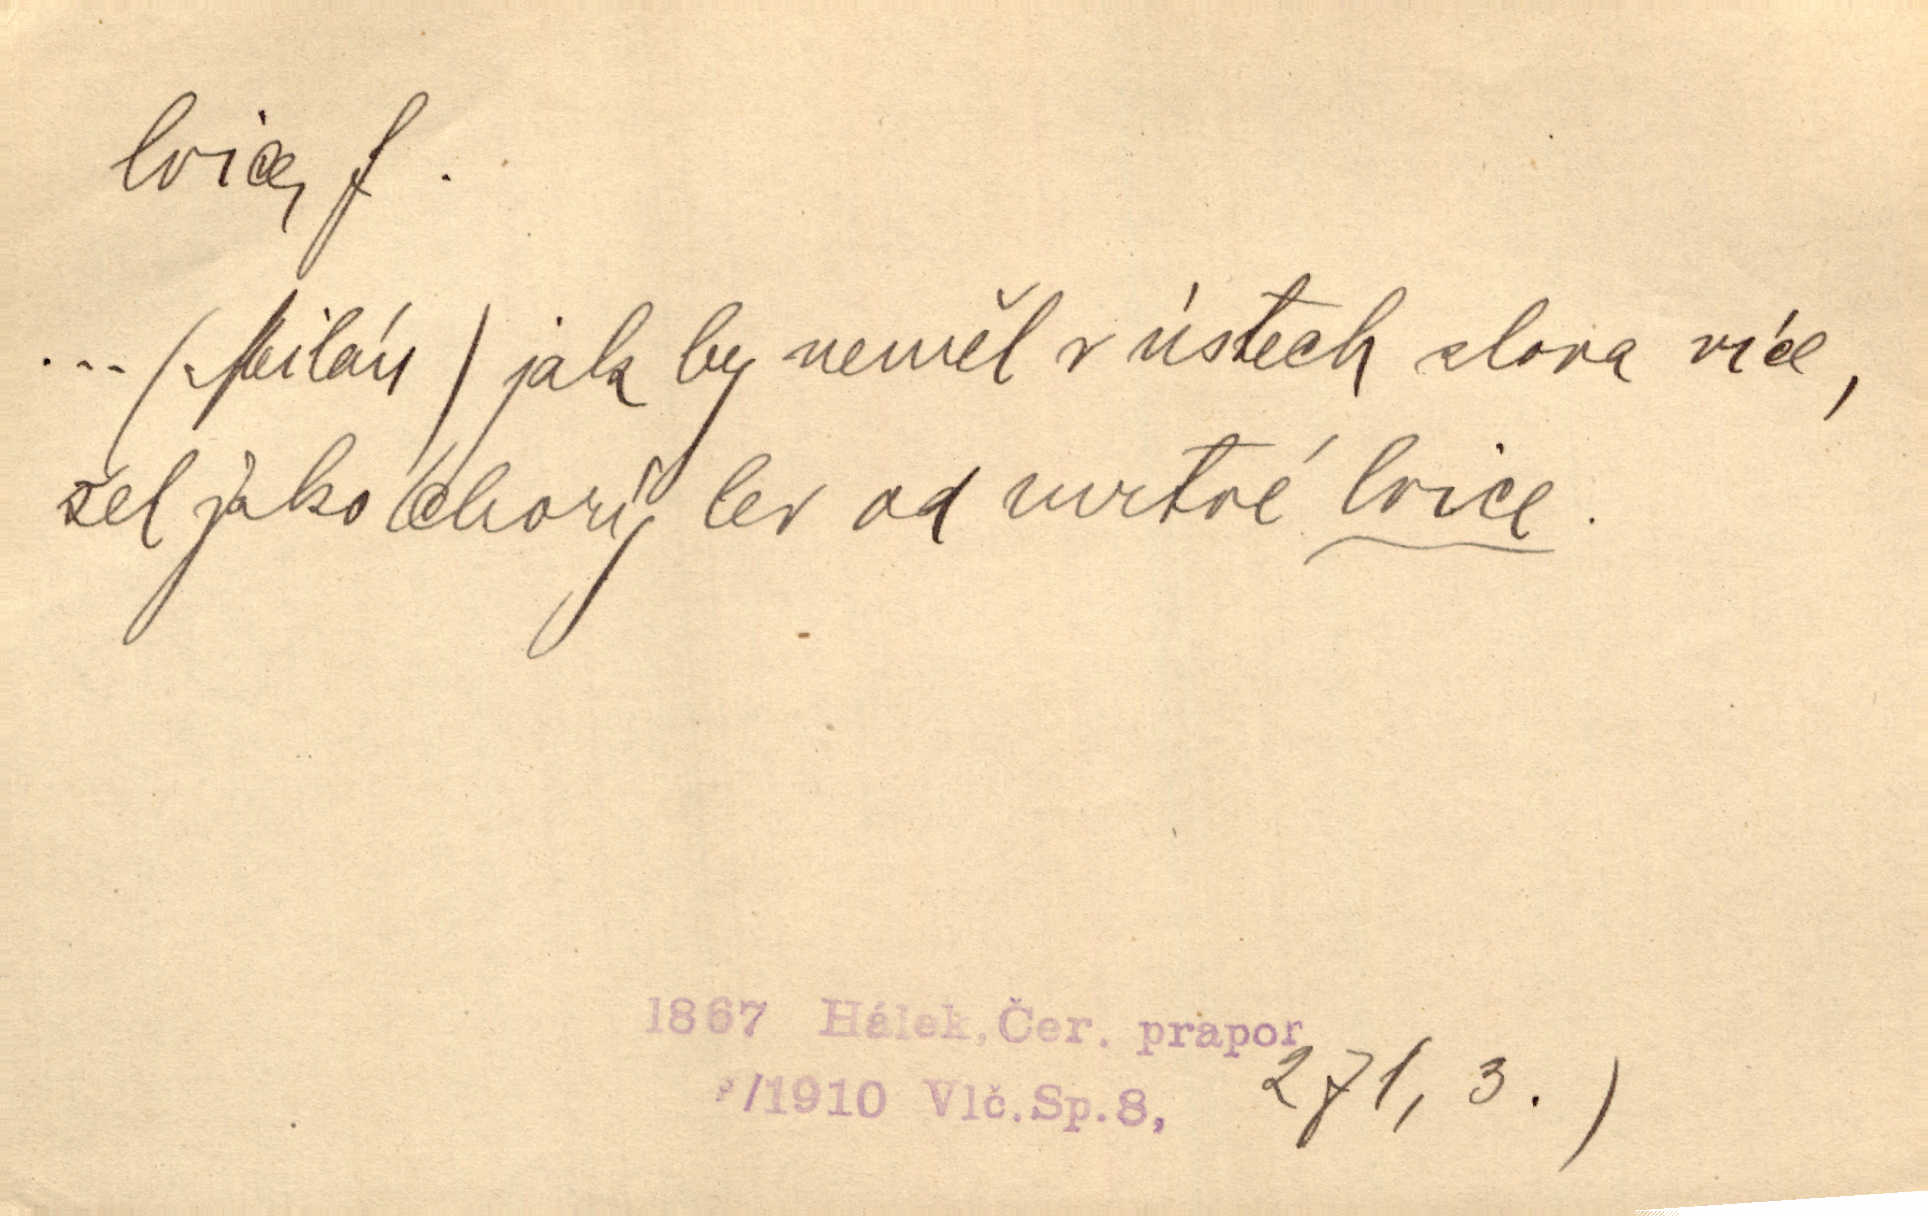 lvice, f.
... (Milán) jak by neměl v ústech slova více,
šel jako chorý lev od mrtvé lvice.
1867 Hálek, Čer. prapor
/1910 Vlč. Sp. 8, 271, 3.)